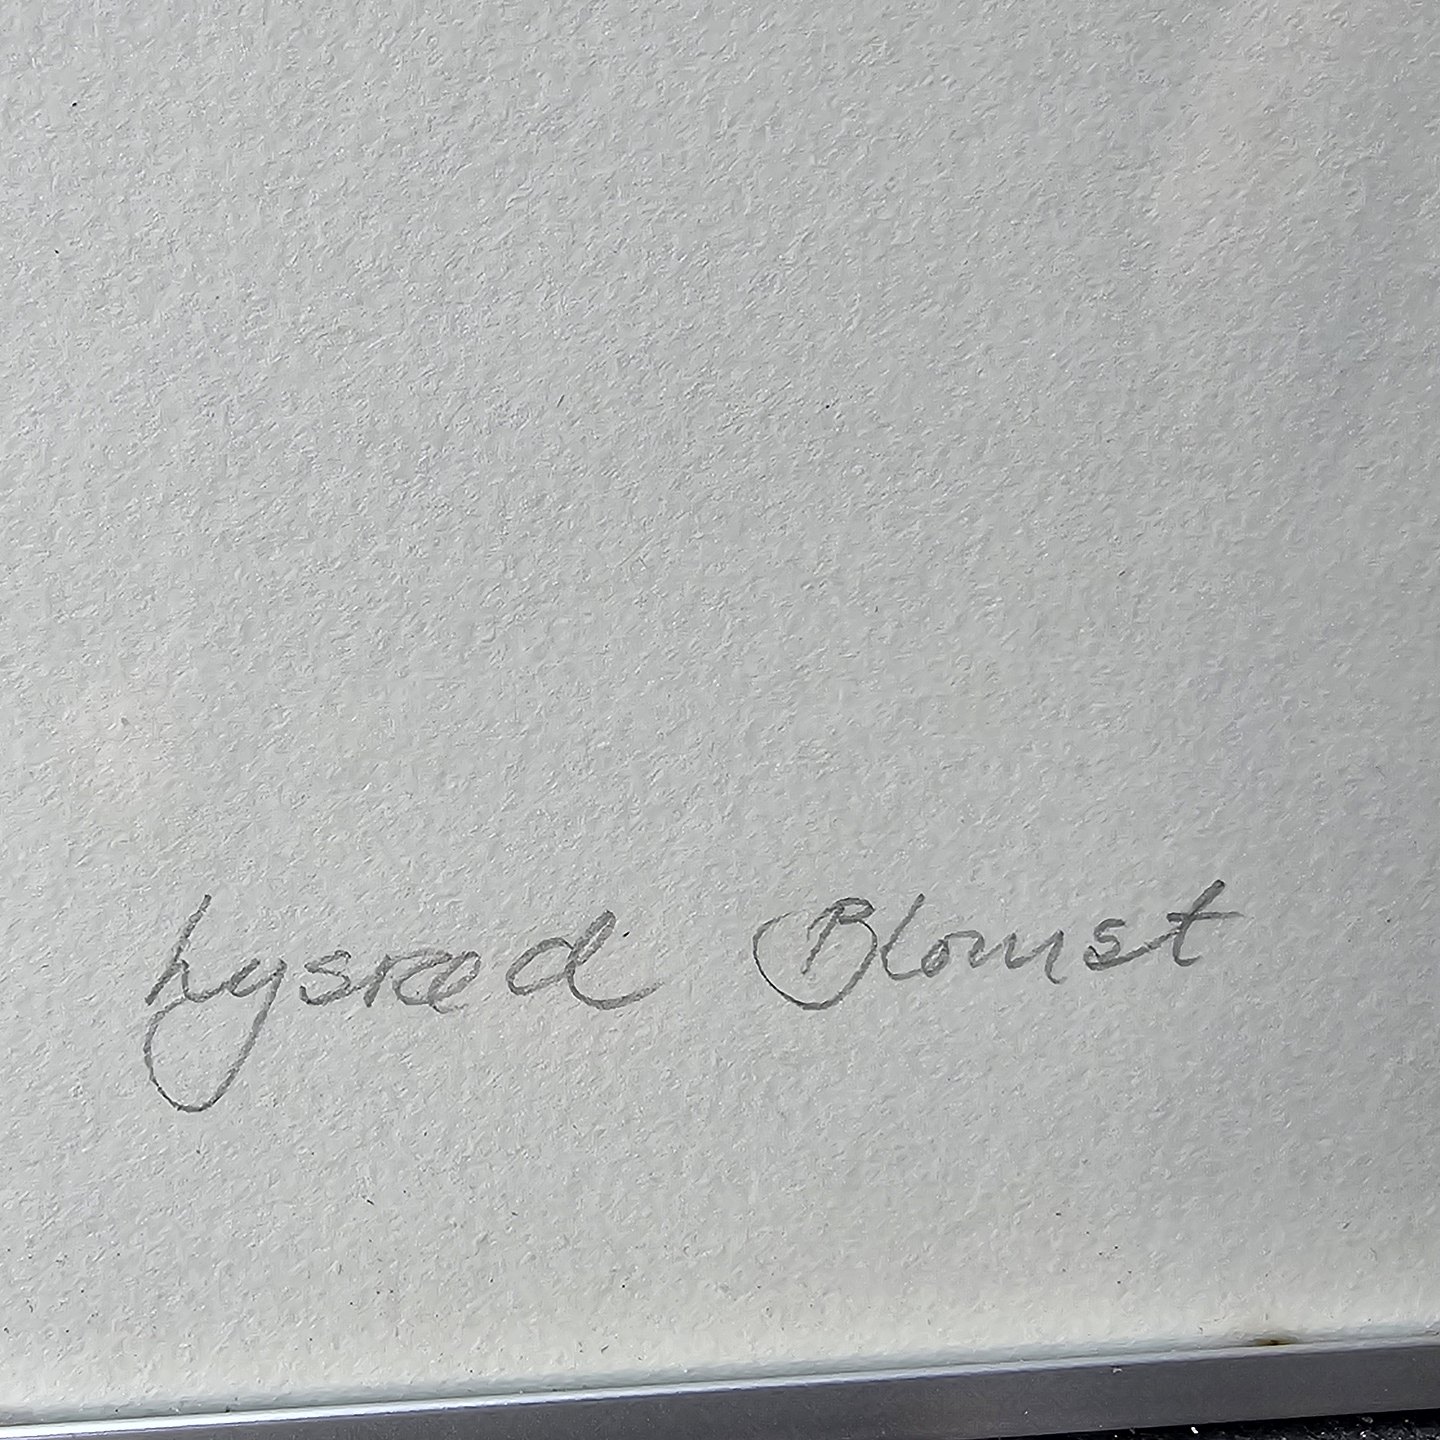 Lysrød Blomst